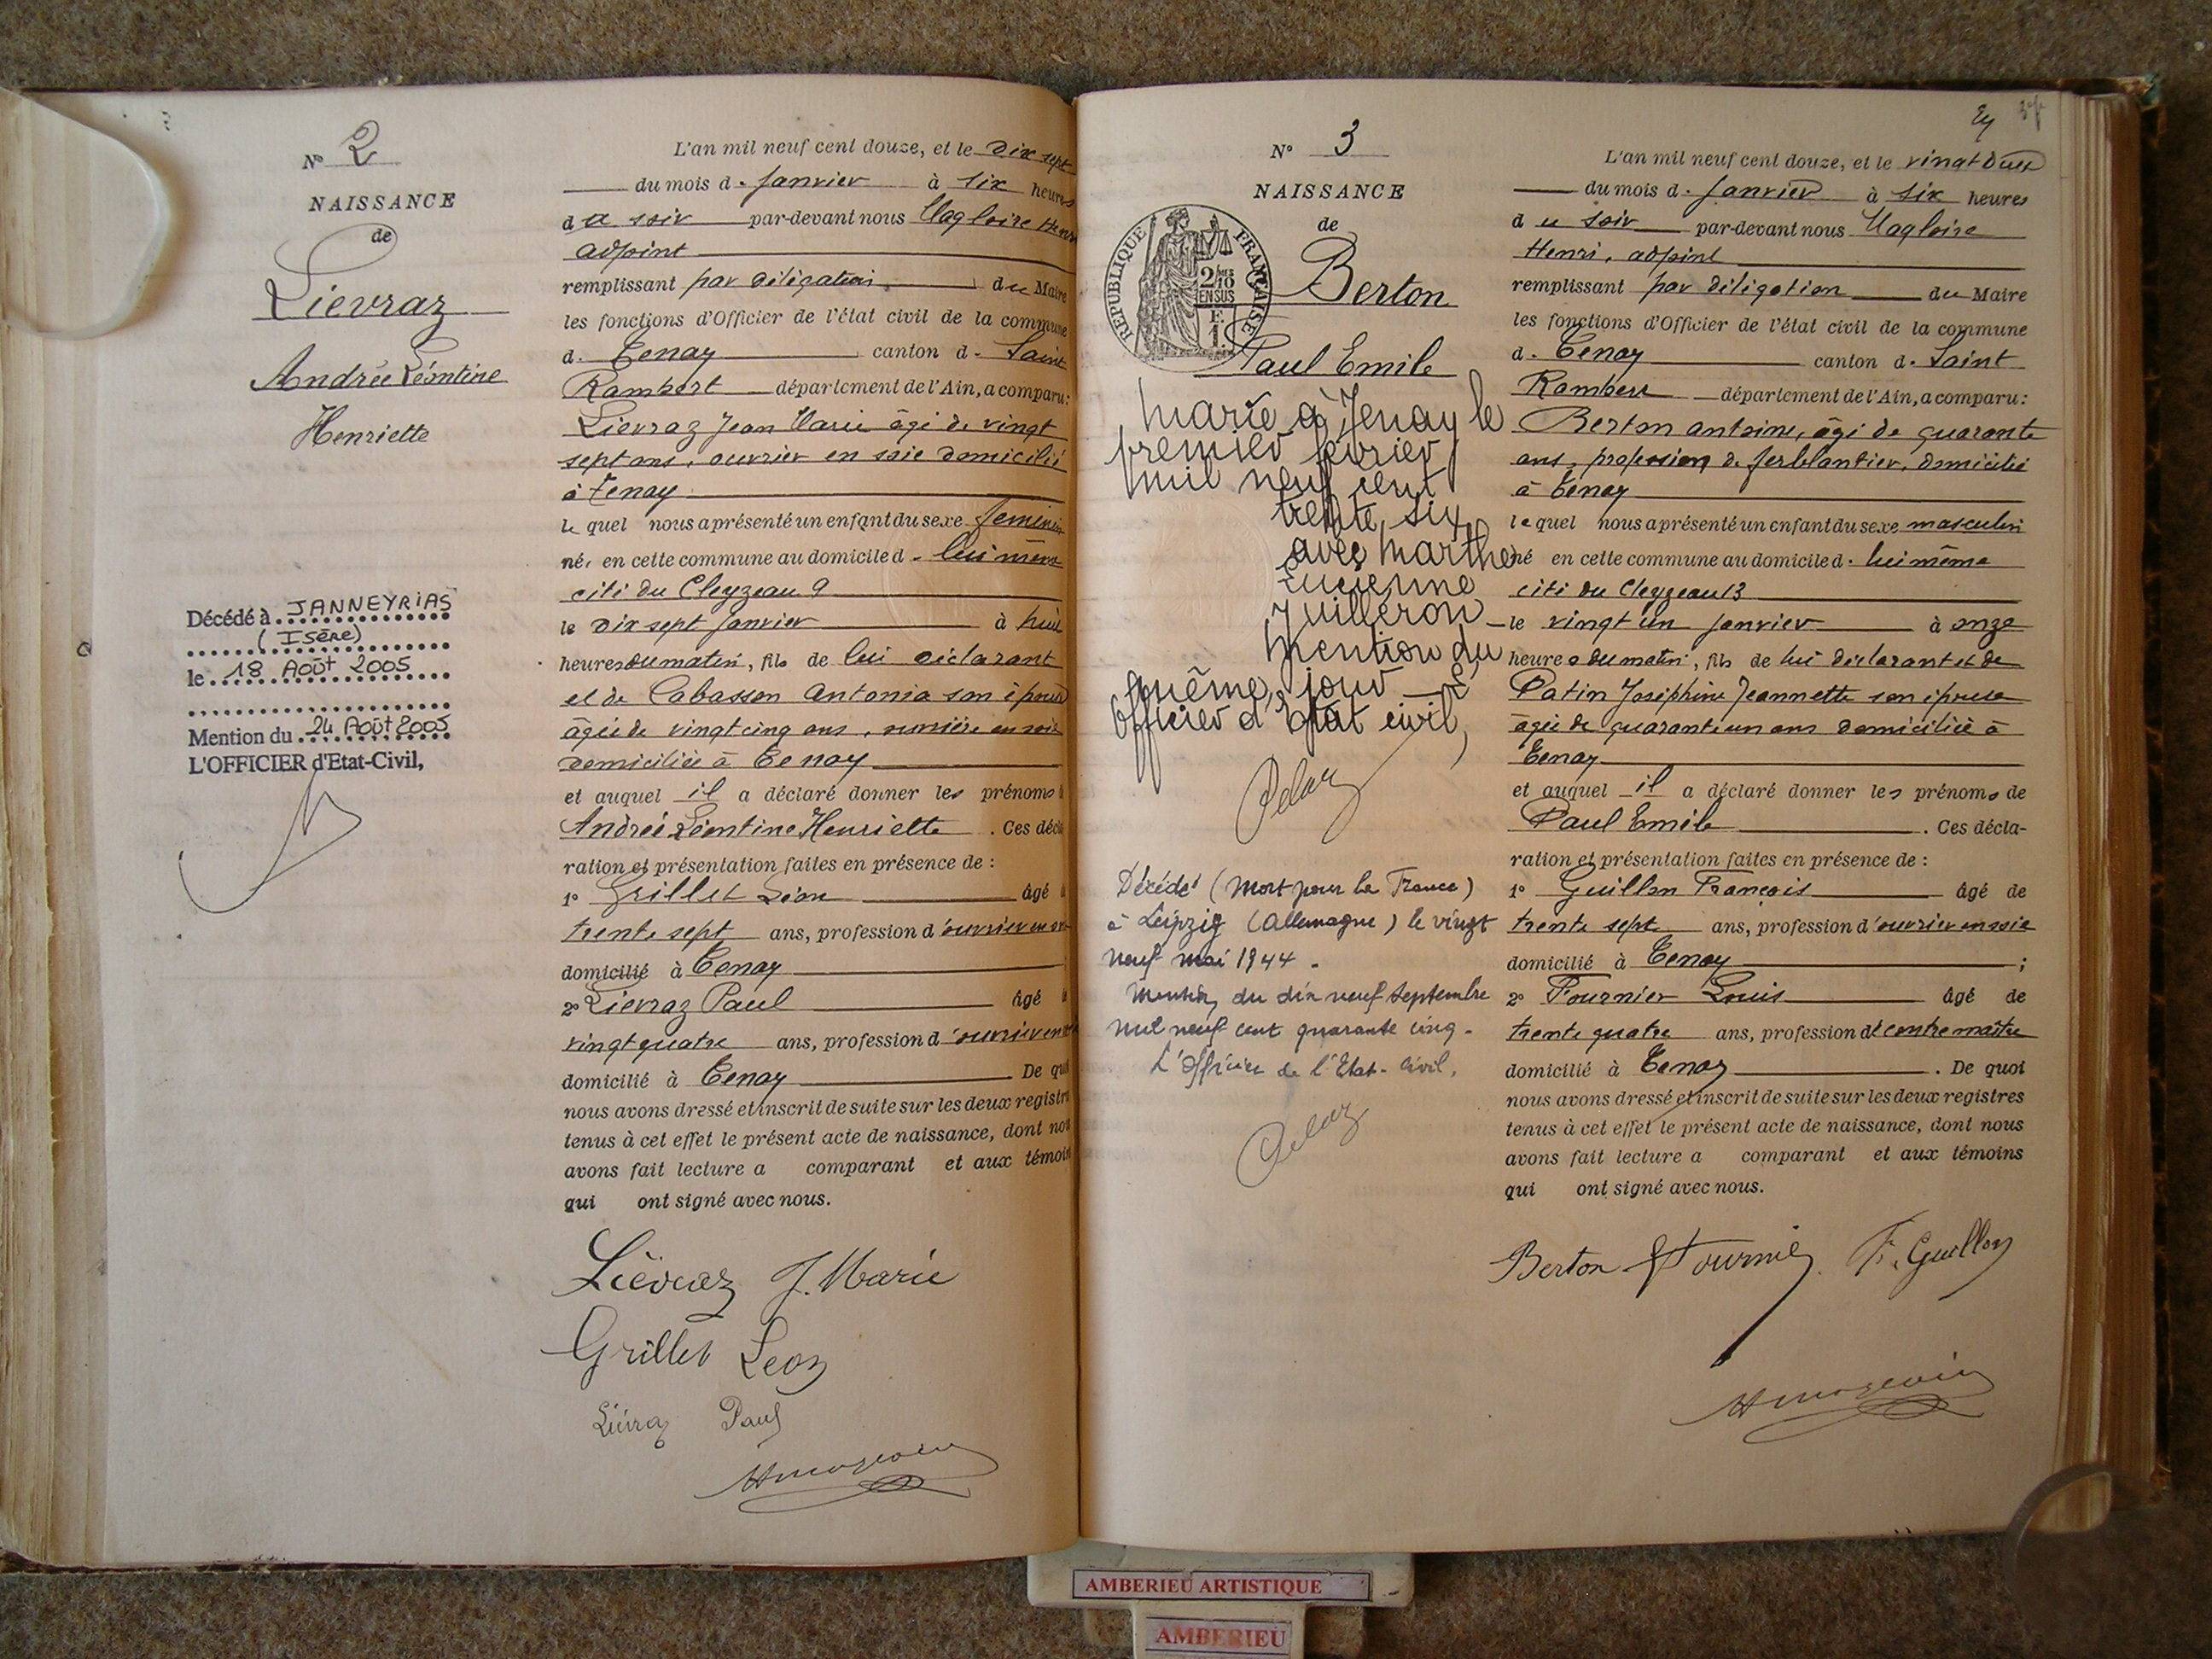 N° 2
NAISSANCE
de
Lievraz
Andrée Léontine
Henriette
Décédé à JANNEYRIAS
(ISÈRE)
le 18 Août 2005
Mention du 24 Août 2005
L'OFFICIER d'Etat-Civil,
L'an mil neuf cent douze, et le Dix sept
du mois d. Janvier à six heures
du soir par-devant nous Magloire Henri
adjoint
remplissant par délégation du Maire
les fonctions d'Officier de l'état civil de la commune
d. Tenay canton d. Saint
Rambert département de l'Ain, a comparu:
Lievraz Jean Marie âgé de vingt
sept ans, ouvrier en soie domicilié
à Tenay
le quel nous a présenté un enfant du sexe féminin
né, en cette commune au domicile d. lui même
cité du Cleyzeau 9
le Dix sept Janvier à huit
heures du matin, fils de lui déclarant
et de Cabasson Antonia son épouse
âgée de vingt cinq ans, ouvrière en soie
domiciliée à Tenay
et auquel il a déclaré donner les prénoms
Andrée Léontine Henriette. Ces décla
ration et présentation faites en présence de :
1° Grillet Léon âgé
trente sept ans, profession d'ouvrier en
domicilié à Tenay
2° Lievraz Paul âgé
vingt quatre ans, profession d'ouvrier en
domicilié à Tenay De quoi
nous avons dressé et inscrit de suite sur les deux registres
tenus à cet effet le présent acte de naissance, dont nous
avons fait lecture a comparant et aux témoins
qui ont signé avec nous.
Liévraz J. Marie
Grillet Leon
Liévraz Paul
N° 3
NAISSANCE
de
REPUBLIQUE FRANÇAISE
2/10
EN SUS
F.
1.
Berton
Paul Emile
Marié à Tenay le
premier février
mil neuf cent
trente six
avec Marthe
Lucienne
Juilléron
Mention du
même jour L'
officier d'Etat civil,
Décédé (Mort pour la France)
à Leipzig (Allemagne) le vingt
neuf mai 1944.
Mention du dix neuf septembre
mil neuf cent quarante cinq.
L'Officier de l'Etat-Civil,
L'an mil neuf cent douze, et le vingt deux
du mois d. Janvier à six heures
du soir par-devant nous Magloire
Henri, adjoint
remplissant par délégation du Maire
les fonctions d'Officier de l'état civil de la commune
d. Tenay canton d. Saint
Rambert département de l'Ain, a comparu:
Berton Antoine, âgé de quarante
ans, profession de ferblantier, domicilié
à Tenay
le quel nous a présenté un enfant du sexe masculin
né en cette commune au domicile d. lui même
cité du Cleyzeau 13
le vingt un Janvier à onze
heures du matin, fils de lui déclarant et de
Patin Joséphine Jeannette son épouse
âgée de quarante un ans domiciliée à
Tenay
et auquel il a déclaré donner les prénoms de
Paul Emile. Ces décla-
ration et présentation faites en présence de :
1° Guillon François âgé de
trente sept ans, profession d'ouvrier en soie
domicilié à Tenay ;
2° Fournier Louis âgé de
trente quatre ans, profession de contremaître
domicilié à Tenay. De quoi
nous avons dressé et inscrit de suite sur les deux registres
tenus à cet effet le présent acte de naissance, dont nous
avons fait lecture a comparant et aux témoins
qui ont signé avec nous.
Berton Fournier F. Guillon
AMBERIEU ARTISTIQUE
AMBERIEU